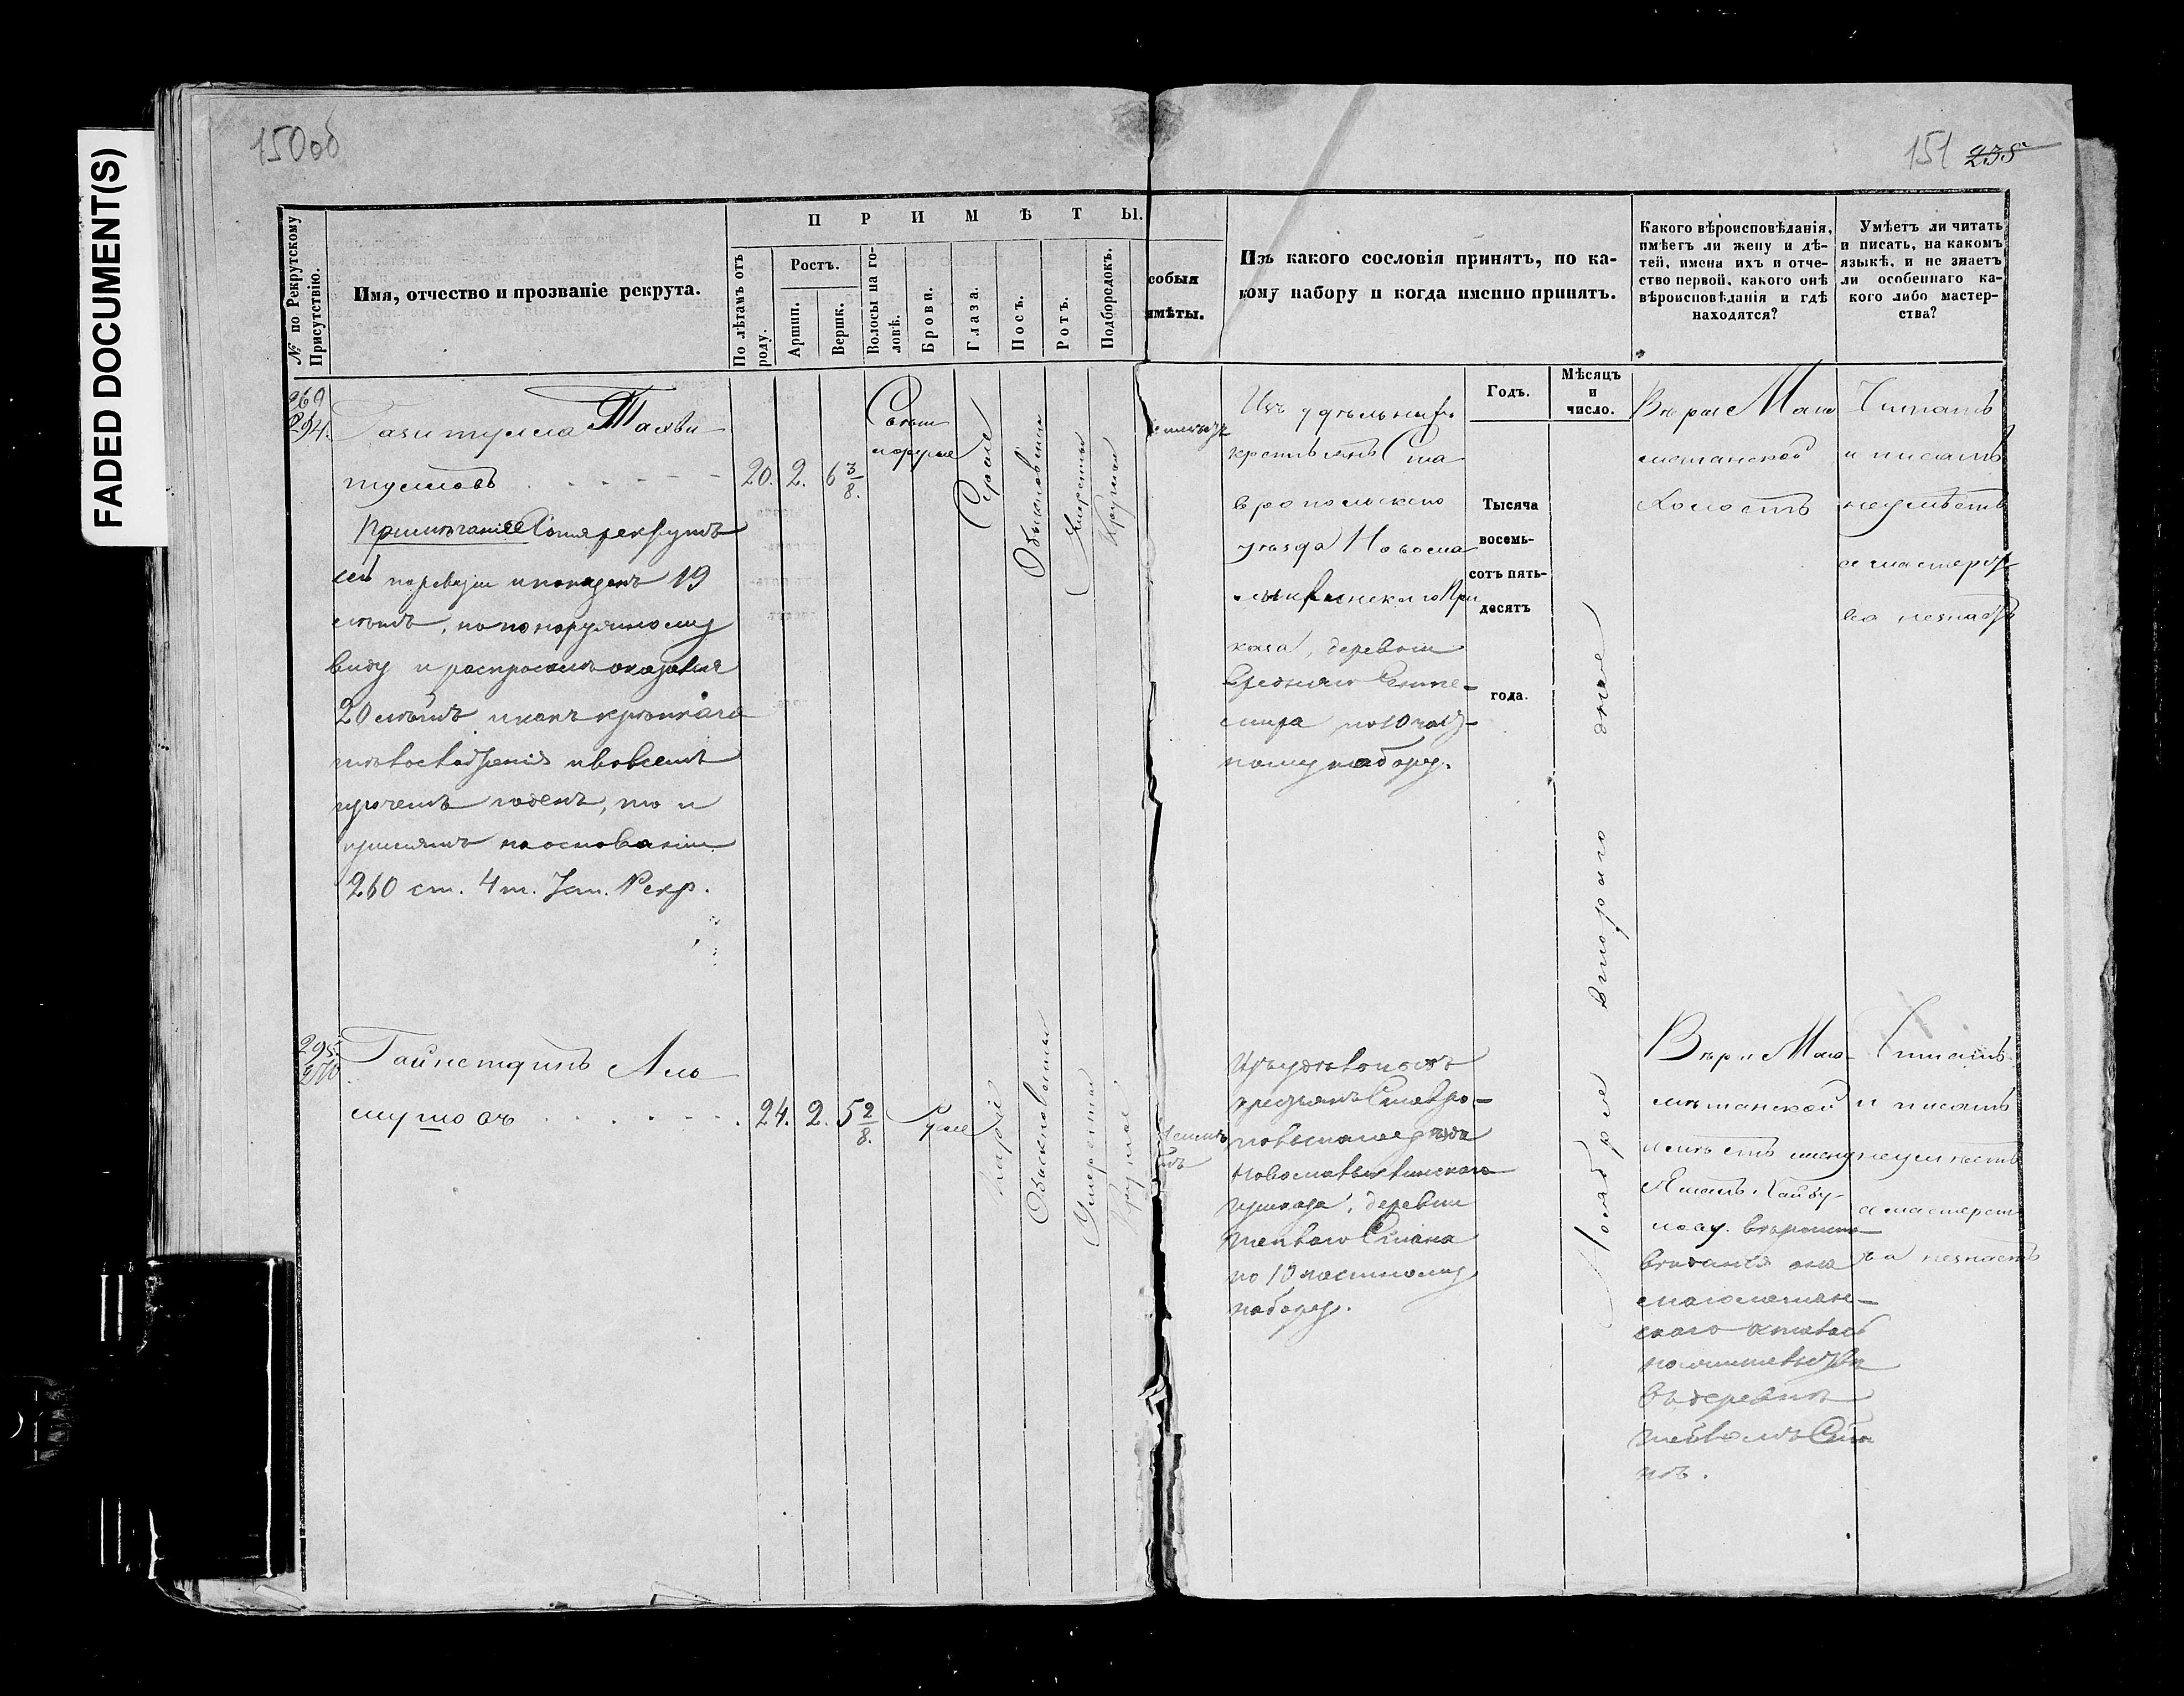 FADED DOCUMENT(S)
150об
151 238
№ по Рекрутскому Присутствію.
Имя, отчество и прозваніе рекрута.
ПРИМѢТЫ.
По лѣтамъ отъ роду.
Ростъ.
Аршин.
Вершк.
Волосы на го-
ловѣ.
Брови.
Глаза.
Носъ.
Ротъ.
Подбородокъ.
собыя
имѣты.
Изъ какого сословія принятъ, по ка-
кому набору и когда именно принятъ.
Годъ.
Мѣсяцъ
и
число.
Какого вѣроисповѣданія,
имѣетъ ли жену и дѣ-
тей, имена ихъ и отче-
ство первой, какого онѣ
вѣроисповѣданія и гдѣ
находятся?
Умѣетъ ли читать
и писать, на какомъ
языкѣ, и не знаетъ
ли особеннаго ка-
кого либо мастер-
ства?
269
294.
Газитулла Тахви
тулловъ
20. 2. 6 3/8.
Свѣтло
русые
Сѣрые
Обыкновенный
Умѣренный
Круглый
Примѣчаніе
по ревизіи показанъ 19
лѣтъ, но по наружному
виду и распросамъ оказался
20 лѣтъ и какъ крѣпкаго
тѣлосложенія и во всемъ
прочемъ годенъ, то и
принятъ на основаніи
260 ст. 4 т. Уст. Рекр.
Изъ удѣльныхъ
крестьянъ Ста
вропольскаго
уѣзда Новома
лыклинскаго При
каза, деревни
Средняго Сантe-
мира по 10 част-
ному набору.
Тысяча
восемь-
сотъ пять-
десятъ
года.
Ноября втораго дня
Вѣры Маго
метанской
Холостъ
Читать
и писать
неумѣетъ
и мастерст
ва незнаетъ
295.
270.
Гайнетдинъ Ма
мутовъ
24. 2. 5 2/8.
Русые
Каріе
Обыкновенный
Умѣренный
Круглый
Изъ удѣльныхъ
крестьянъ Ставро-
польскаго уѣзда
Новомалыклинскаго
приказа, деревни
по 10 частному
набору.
Вѣры Маго-
метанской
имѣетъ жену
вѣроиспо-
вѣданія она
магометан-
скаго осталась
на жительствѣ
въ деревнѣ
Читать
и писать
неумѣетъ
и мастерст
ва незнаетъ